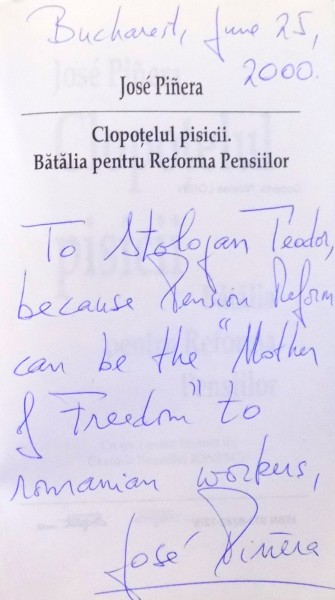 Bucharest, June 25,
2000.
José Piñera
Clopoțelul pisicii.
Bătălia pentru Reforma Pensiilor
To Stologan Teodor,
because Pension Reform
can be the "Mother"
of Freedom to
romanian workers,
José Piñera